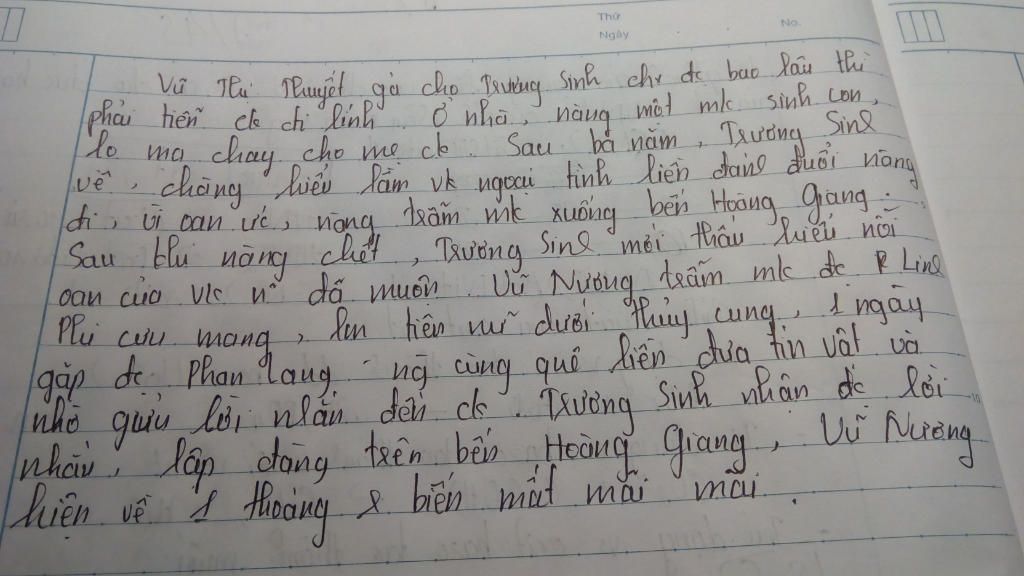 Thứ
Ngày
No.
Vũ Thị Thuyết gả cho Trương Sinh chư đc bao lâu thì
phải tiễn ck đi lính. Ở nhà, nàng một mk sinh con,
lo ma chay cho mẹ ck. Sau ba năm, Trương Sinh
về, chàng hiểu lầm vk ngoại tình liền đánh đuổi nàng
đi, vì oan ức, nàng trẫm mk xuống bến Hoàng Giang.
Sau khi nàng chết, Trương Sinh mới thấu hiểu nỗi
oan của vk n~ đã muộn. Vũ Nương trẫm mk đc Linh
Phi cưu mang, làm tiên nữ dưới thủy cung, 1 ngày
gặp đc Phan Lang ng cùng quê liền đưa tín vật và
nhờ gửi lời nhắn đến ck. Trương Sinh nhận đc lời
nhắn, lập đàng trên bến Hoàng Giang, Vũ Nương
hiện về 1 thoáng & biến mất mãi mãi.